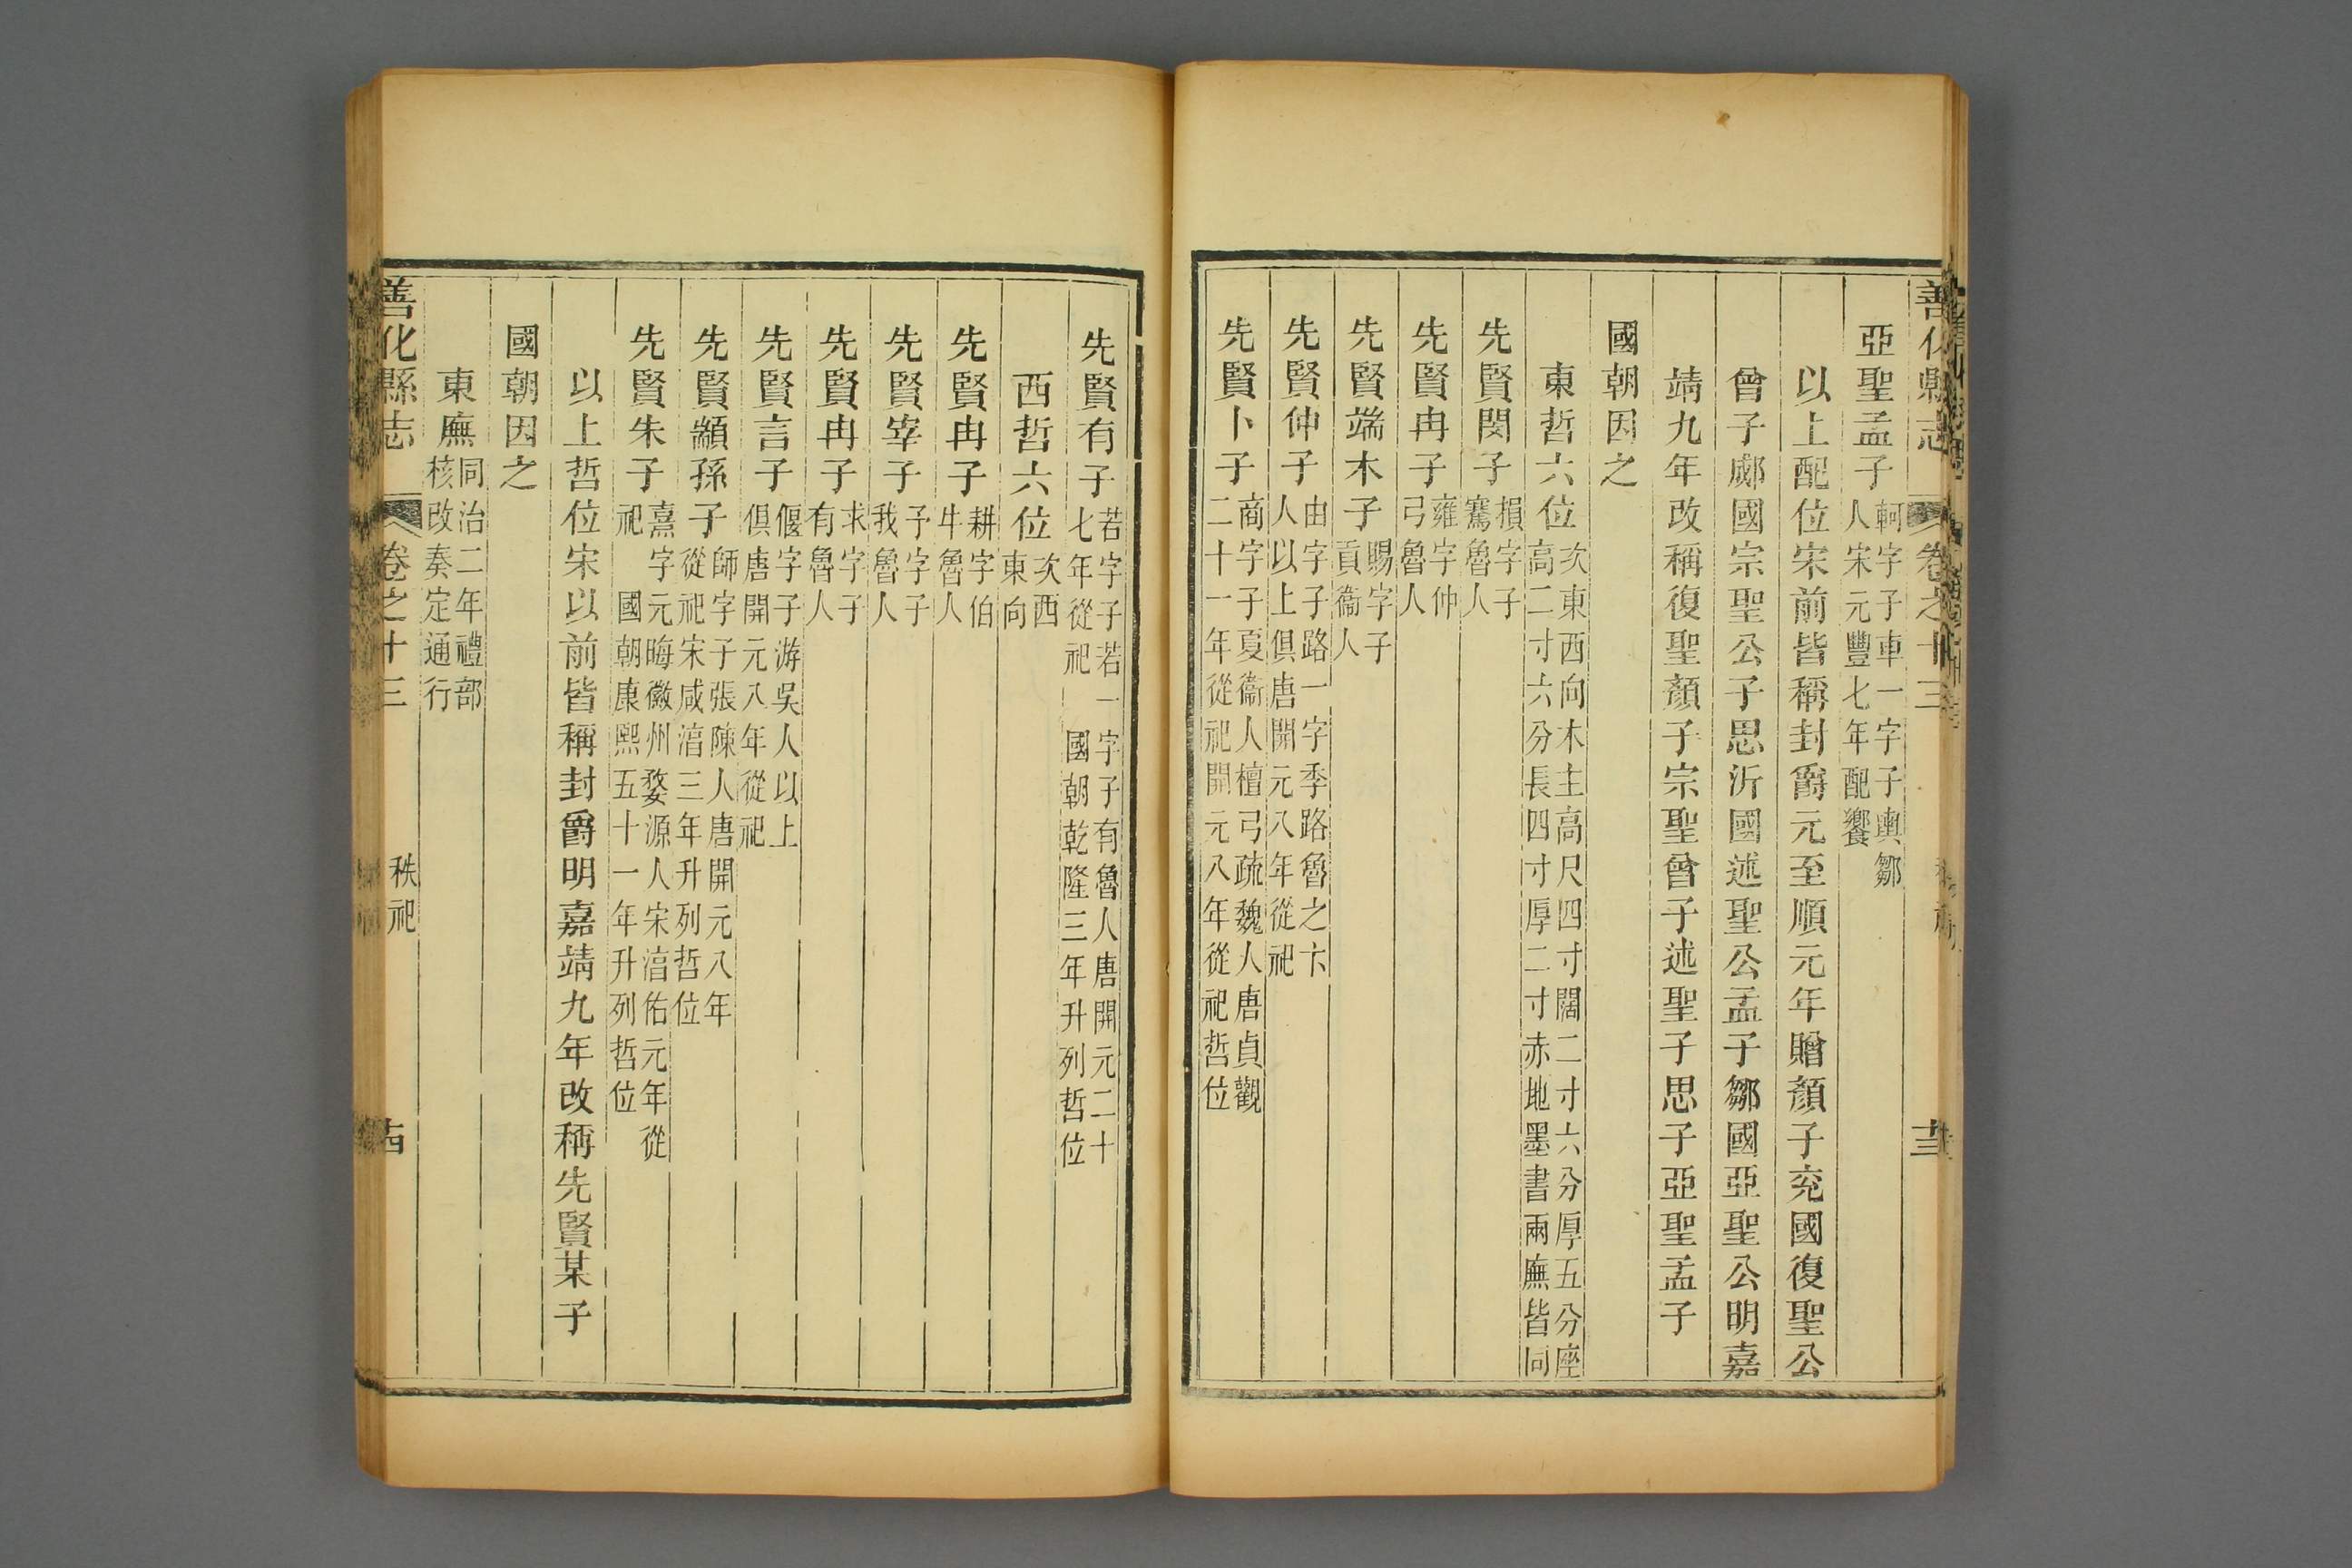 善化縣志 卷之十三 十三
亞聖孟子軻字子車一字子輿鄒人宋元豐七年配饗
以上配位宋前皆稱封爵元至順元年贈顏子兗國復聖公
曾子郕國宗聖公子思沂國述聖公孟子鄒國亞聖公明嘉
靖九年改稱復聖顏子宗聖曾子述聖子思子亞聖孟子
國朝因之
東哲六位次東西向木主高尺四寸闊二寸六分厚五分座高二寸六分長四寸厚二寸赤地墨書兩廡皆同
先賢閔子損字子騫魯人
先賢冉子雍字仲弓魯人
先賢端木子賜字子貢衞人
先賢仲子由字子路一字季路魯之卞人以上俱唐開元八年從祀
先賢卜子商字子夏衞人檀弓疏魏人唐貞觀二十一年從祀開元八年從祀哲位
先賢有子若字子若一字子有魯人唐開元二十七年從祀 國朝乾隆三年升列哲位
西哲六位次西東向
先賢冉子耕字伯牛魯人
先賢宰子予字子我魯人
先賢冉子求字子有魯人
先賢言子偃字子游吳人以上俱唐開元八年從祀
先賢顓孫子師字子張陳人唐開元八年從祀宋咸湻三年升列哲位
先賢朱子熹字元晦徽州婺源人宋湻佑元年從祀 國朝康熙五十一年升列哲位
以上哲位宋以前皆稱封爵明嘉靖九年改稱先賢某子
國朝因之
東廡同治二年禮部核改奏定通行
善化縣志 卷之十三 秩祀 十四